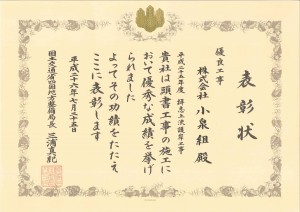 表彰状
優良工事
株式会社 小泉組 殿
平成二十五年度
貴社は頭書工事の施工に
おいて優秀な成績を挙げ
られました
よってその功績をたたえ
ここに表彰します
平成二十六年七月二十五日
国土交通省四国地方整備局長 三浦真紀